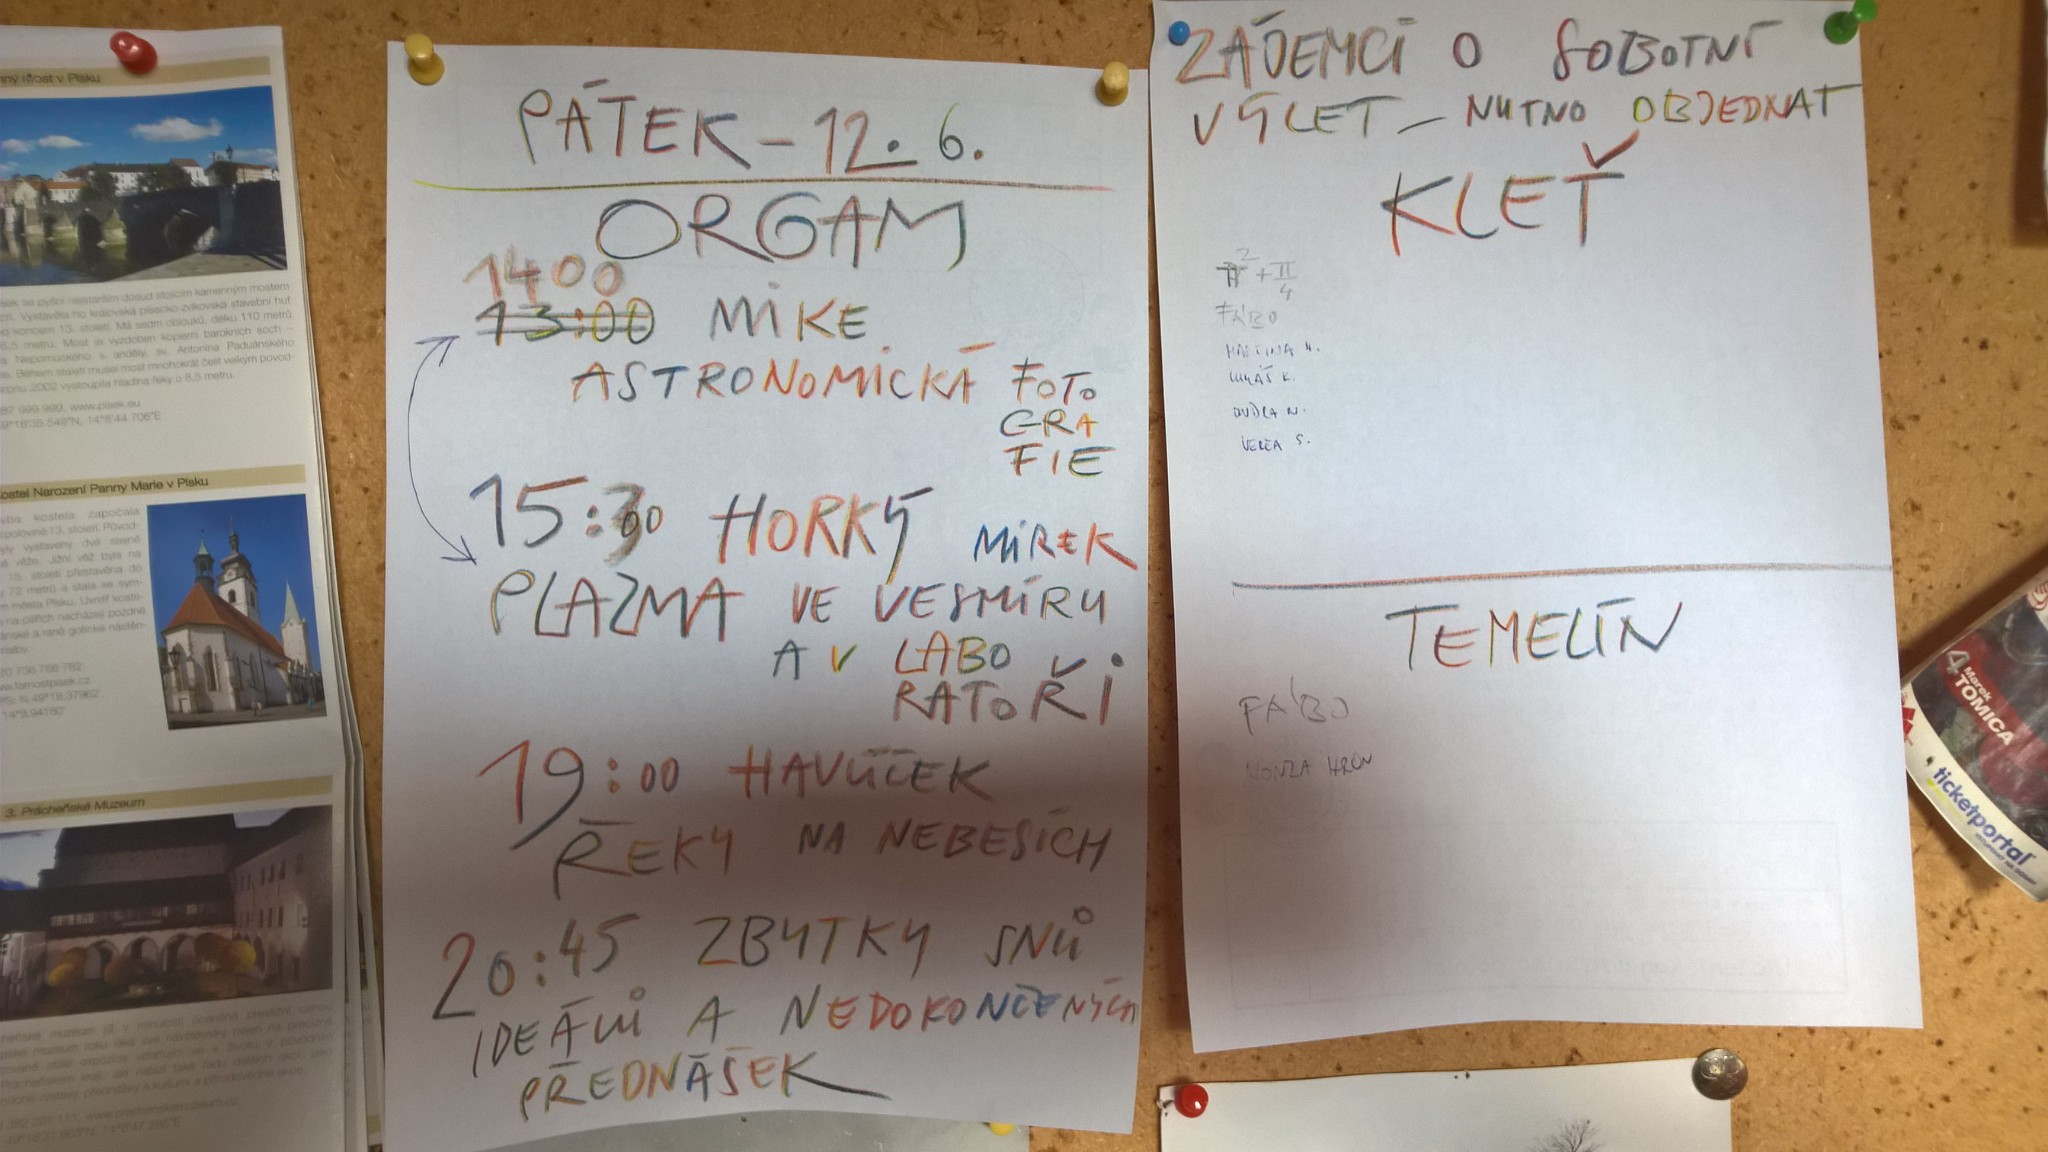 nný most v Písku
sek se pyšní nejstarším dosud stojícím kamenným mostem
koncem 13. století. Má sedm oblouků, délku 110 metrů
6,5 metru. Most je vyzdoben kopiemi barokních soch –
Nepomuckého s anděly, sv. Antonína Paduánského
Během staletí musel most mnohokrát čelit velkým povod-
srpnu 2002 vystoupila hladina řeky o 8,5 metru.
87 999 999, www.pisek.eu
ostel Narození Panny Marie v Písku
vba kostela započala
polovině 13. století. Původ-
yly vystaveny dvě stejné
é věže. Jižní věž byla na
15. století přestavěna do
y 72 metrů a stala se sym-
m města Písku. Uvnitř koste-
na pilířích nacházejí pozdně
ánské a raně gotické nástěn-
malby.
20 736 766 782
3. Prácheňské Muzeum
PÁTEK – 12. 6.
ORGAM
14 00
13:00 MIKE
ASTRONOMICKÁ FOTO
GRA
FIE
15:30 00 HORKÝ MIREK
PLAZMA VE VESMÍRU
A V LABO
RATOŘI
19:00 HAVLÍČEK
ŘEKY NA NEBESÍCH
20:45 ZBYTKY SNŮ
IDEÁLŮ A NEDOKONČENÝCH
PŘEDNÁŠEK
ZÁJEMCI O SOBOTNÍ
VÝLET – NUTNO OBJEDNAT
KLEŤ
π² + π/4
FÁBO
MARTINA H.
LUKÁŠ K.
VERČA S.
TEMELÍN
FÁBO
HONZA HRON
4 Marek
TOMICA
ticketportal